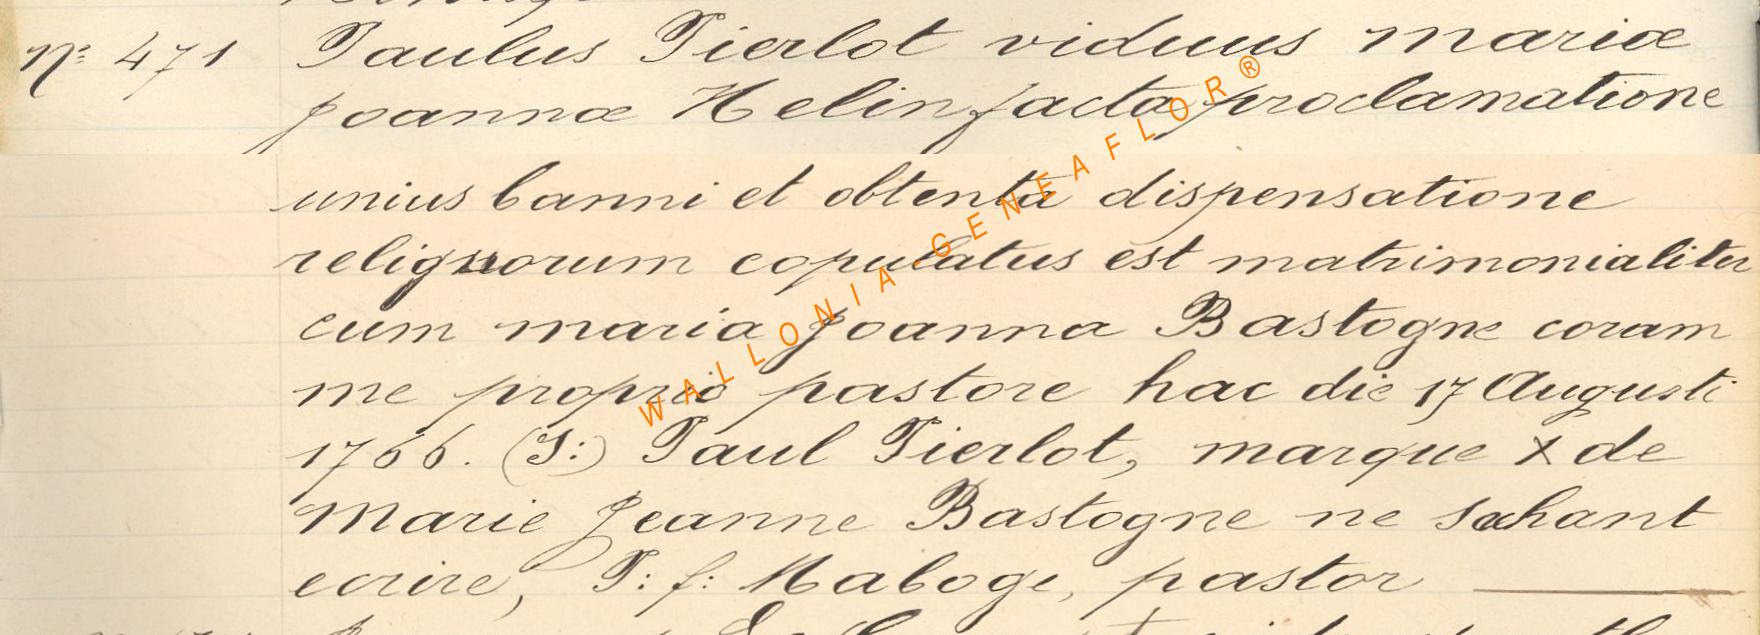 N: 471 Paulus Pierlot viduus mariæ
joannæ Helin facta proclamatione
unius banni et obtenta dispensatione
reliquorum copulatus est matrimonialiter
cum maria joanna Bastogne coram
me proprio pastore hac die 17 Augusti
1766. (S:) Paul Pierlot, marque X de
Marie Jeanne Bastogne ne sachant
ecrire, P: f: Maboge, pastor
WALLONIA-GENEAFLOR®